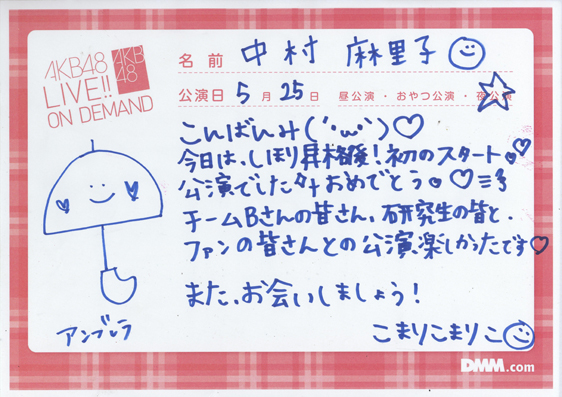 AKB48
LIVE!!
ON DEMAND
AKB
48
名前 中村 麻里子
公演日 5月25日 昼公演・おやつ公演・夜公演
こんばんみ(´・ω・`)♡
今日は、しほり昇格後!初のスタート。
公演でした!おめでとう。♡
チームBさんの皆さん、研究生の皆と、
ファンの皆さんとの公演、楽しかったです♡
また、お会いしましょう!
アンブレラ
こまりこまりこ
DMM.com